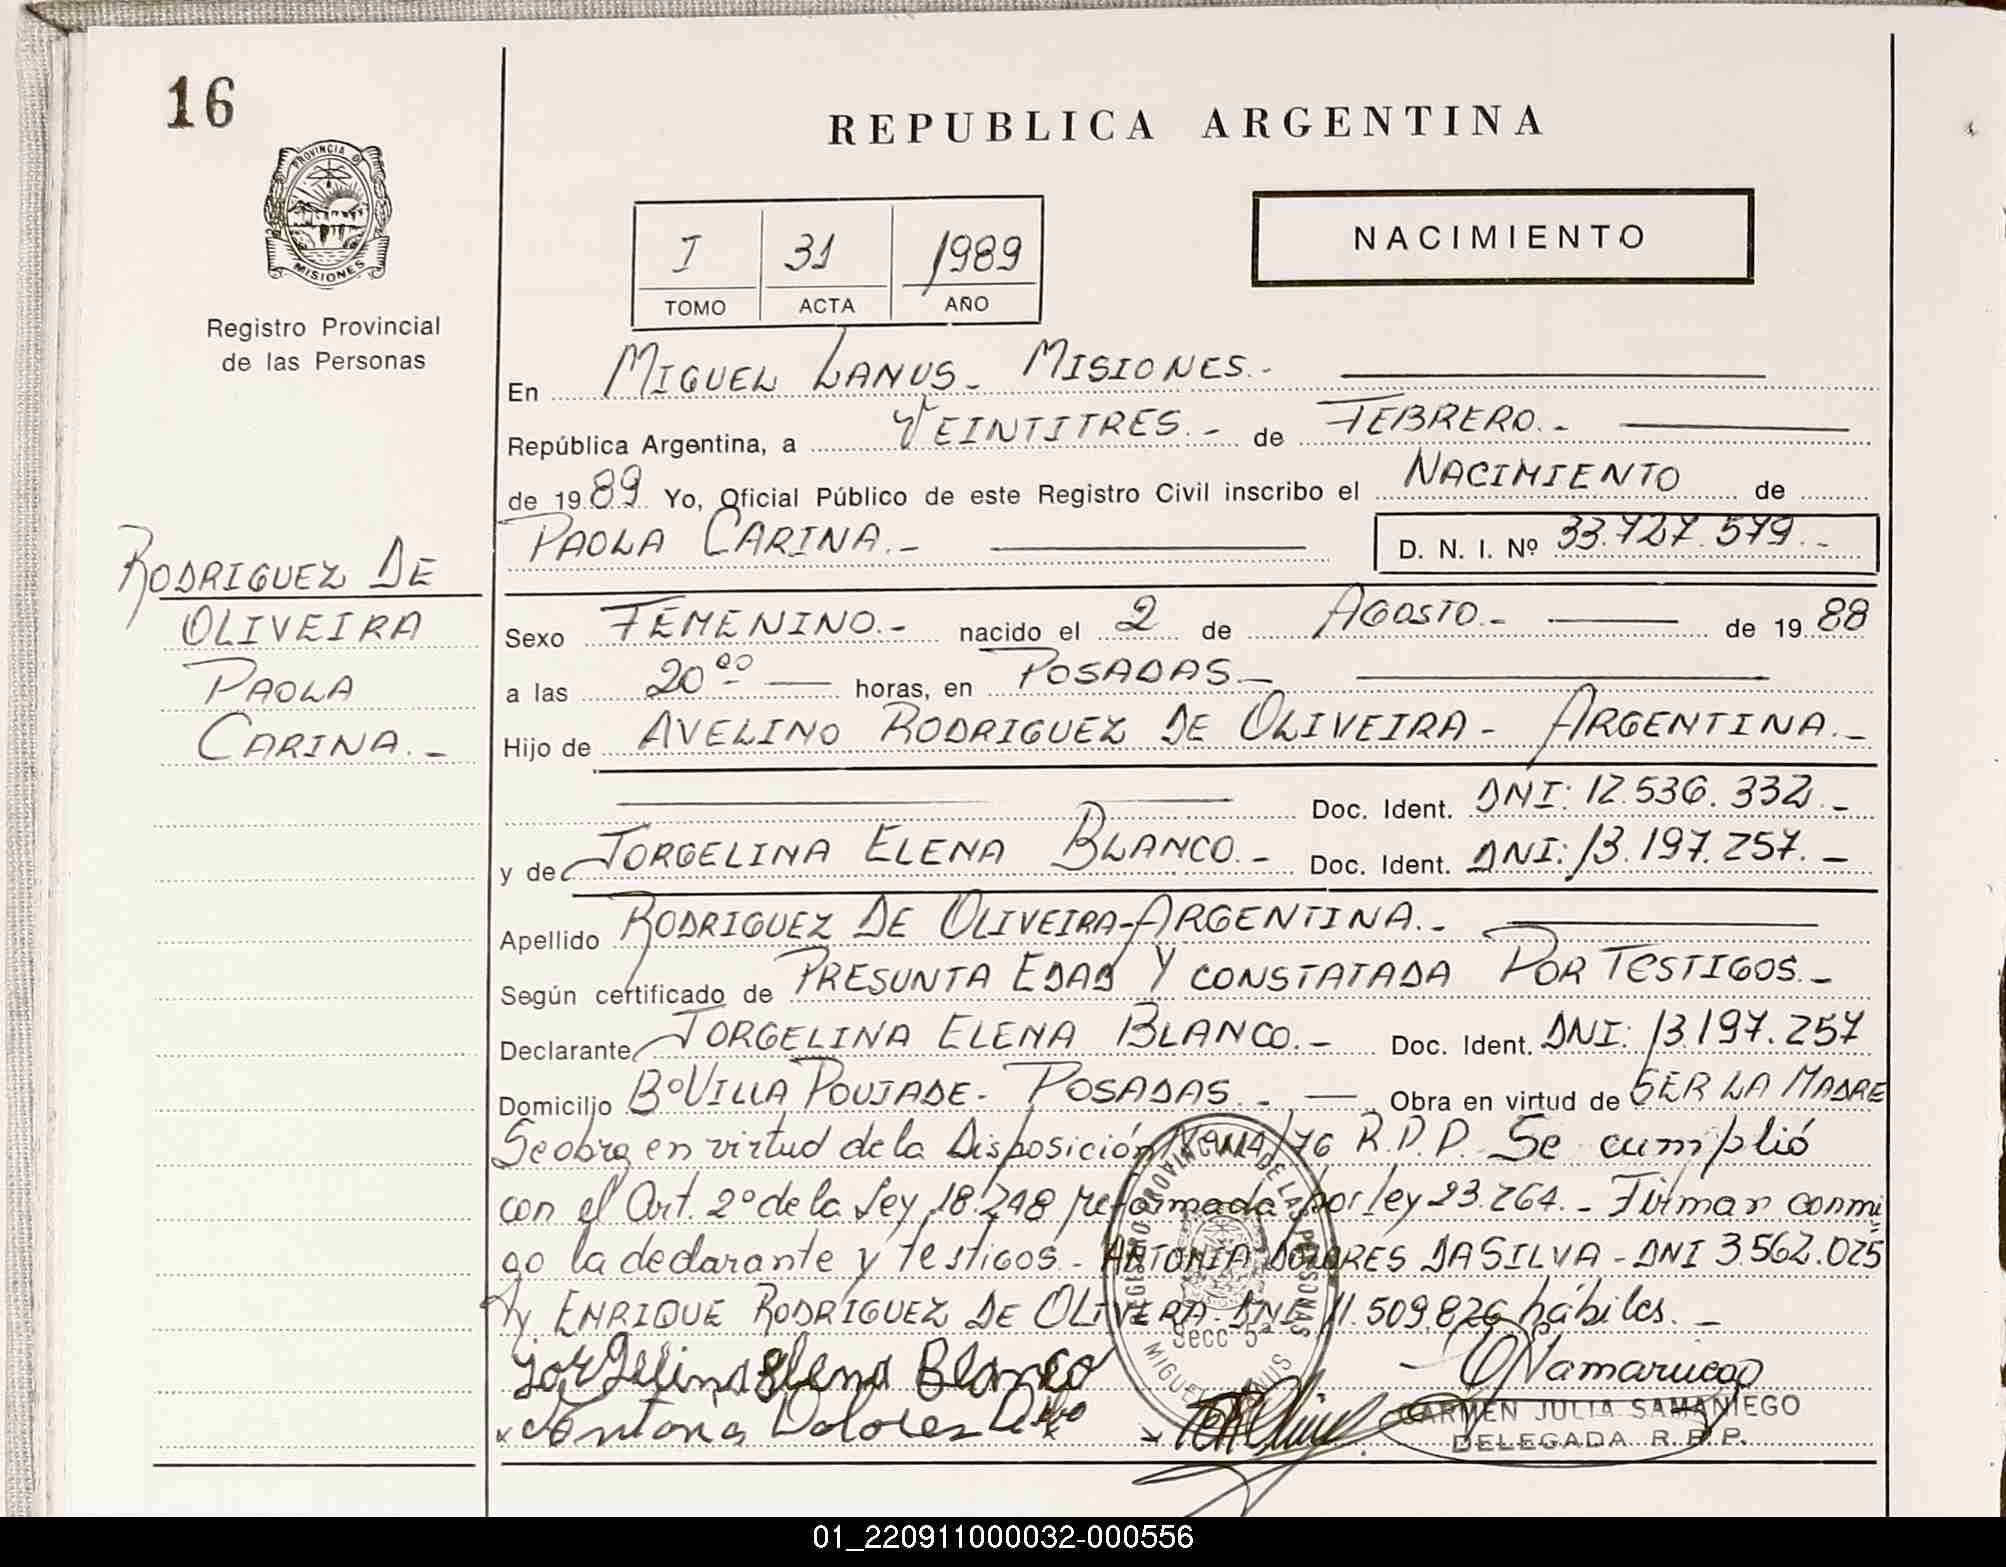 16
REPUBLICA ARGENTINA
PROVINCIA DE
MISIONES
Registro Provincial
de las Personas
I 31 1989
TOMO ACTA AÑO
NACIMIENTO
En MIGUEL LANUS - MISIONES.-
República Argentina, a VEINTITRES.- de FEBRERO.-
de 1989 Yo, Oficial Público de este Registro Civil inscribo el NACIMIENTO de
PAOLA CARINA.- D. N. I. Nº 33.727.579.-
RODRIGUEZ DE
OLIVEIRA
PAOLA
CARINA.-
Sexo FEMENINO.- nacido el 2 de AGOSTO.- de 1988
a las 20ºº horas, en POSADAS.-
Hijo de AVELINO RODRIGUEZ DE OLIVEIRA - ARGENTINA.-
Doc. Ident. DNI: 12.536.332.-
y de JORGELINA ELENA BLANCO.- Doc. Ident. DNI: 13.197.257.-
Apellido RODRIGUEZ DE OLIVEIRA-ARGENTINA.-
Según certificado de PRESUNTA EDAD Y CONSTATADA POR TESTIGOS.-
Declarante JORGELINA ELENA BLANCO.- Doc. Ident. DNI: 13.197.257
Domicilio BºVILLA POUJADE - POSADAS.- Obra en virtud de SER LA MADRE
Se obra en virtud de la Disposición /76 R.P.P. Se cumplió
con el Art. 2º de la ley 18.248 reformada por ley 23.264.- Firman conmi
go la declarante y testigos - ANTONIA DOLORES DA SILVA - DNI 3.562.025
y ENRIQUE RODRIGUEZ DE OLIVERA - DNI 11.509.826 hábiles.-
REGISTRO PROVINCIAL DE LAS PERSONAS
Secc 5ª
MIGUEL LANUS
Jorgelina Elena Blanco
Antonia Dolores
CARMEN JULIA SAMANIEGO
DELEGADA R.P.P.
01_220911000032-000556